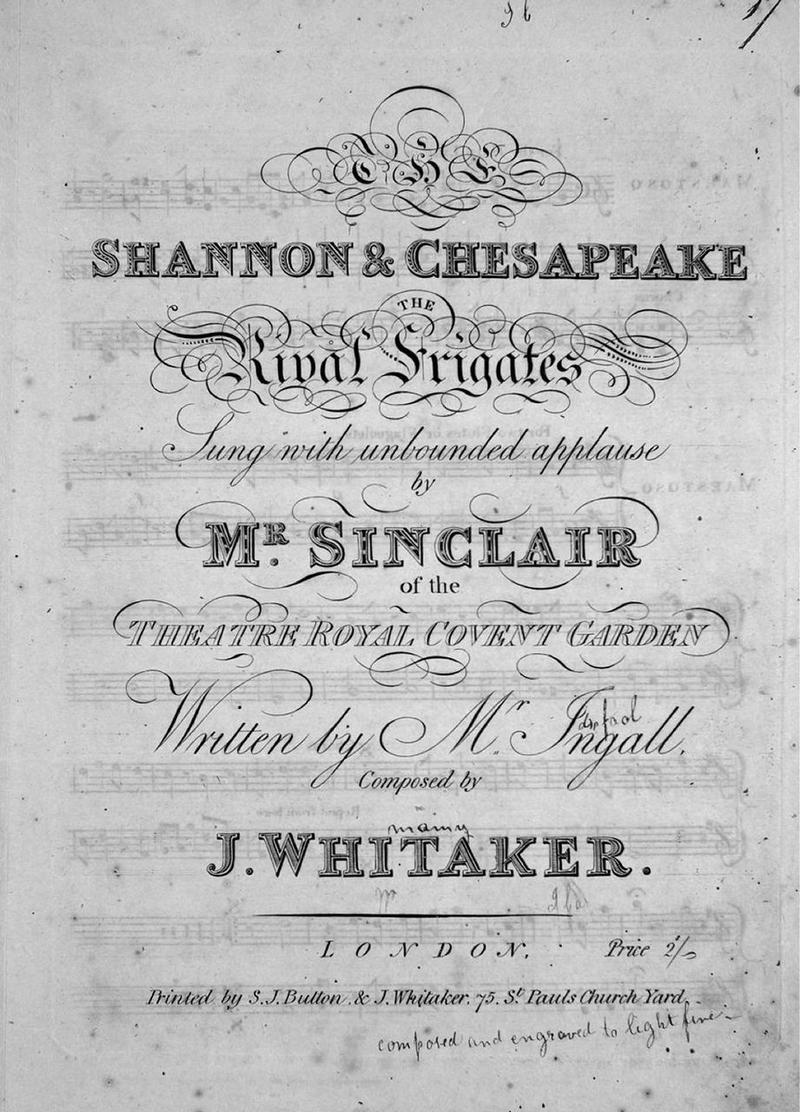 THE
SHANNON & CHESAPEAKE
THE
Rival Frigates
Sung with unbounded applause
by
MR. SINCLAIR
of the
THEATRE ROYAL COVENT GARDEN
Written by Mr. Ingall.
Composed by
J. WHITAKER.
LONDON. Price 2/-
Printed by S. J. Button, & J. Whitaker, 75, St. Pauls Church Yard.
composed and engraved to light fire